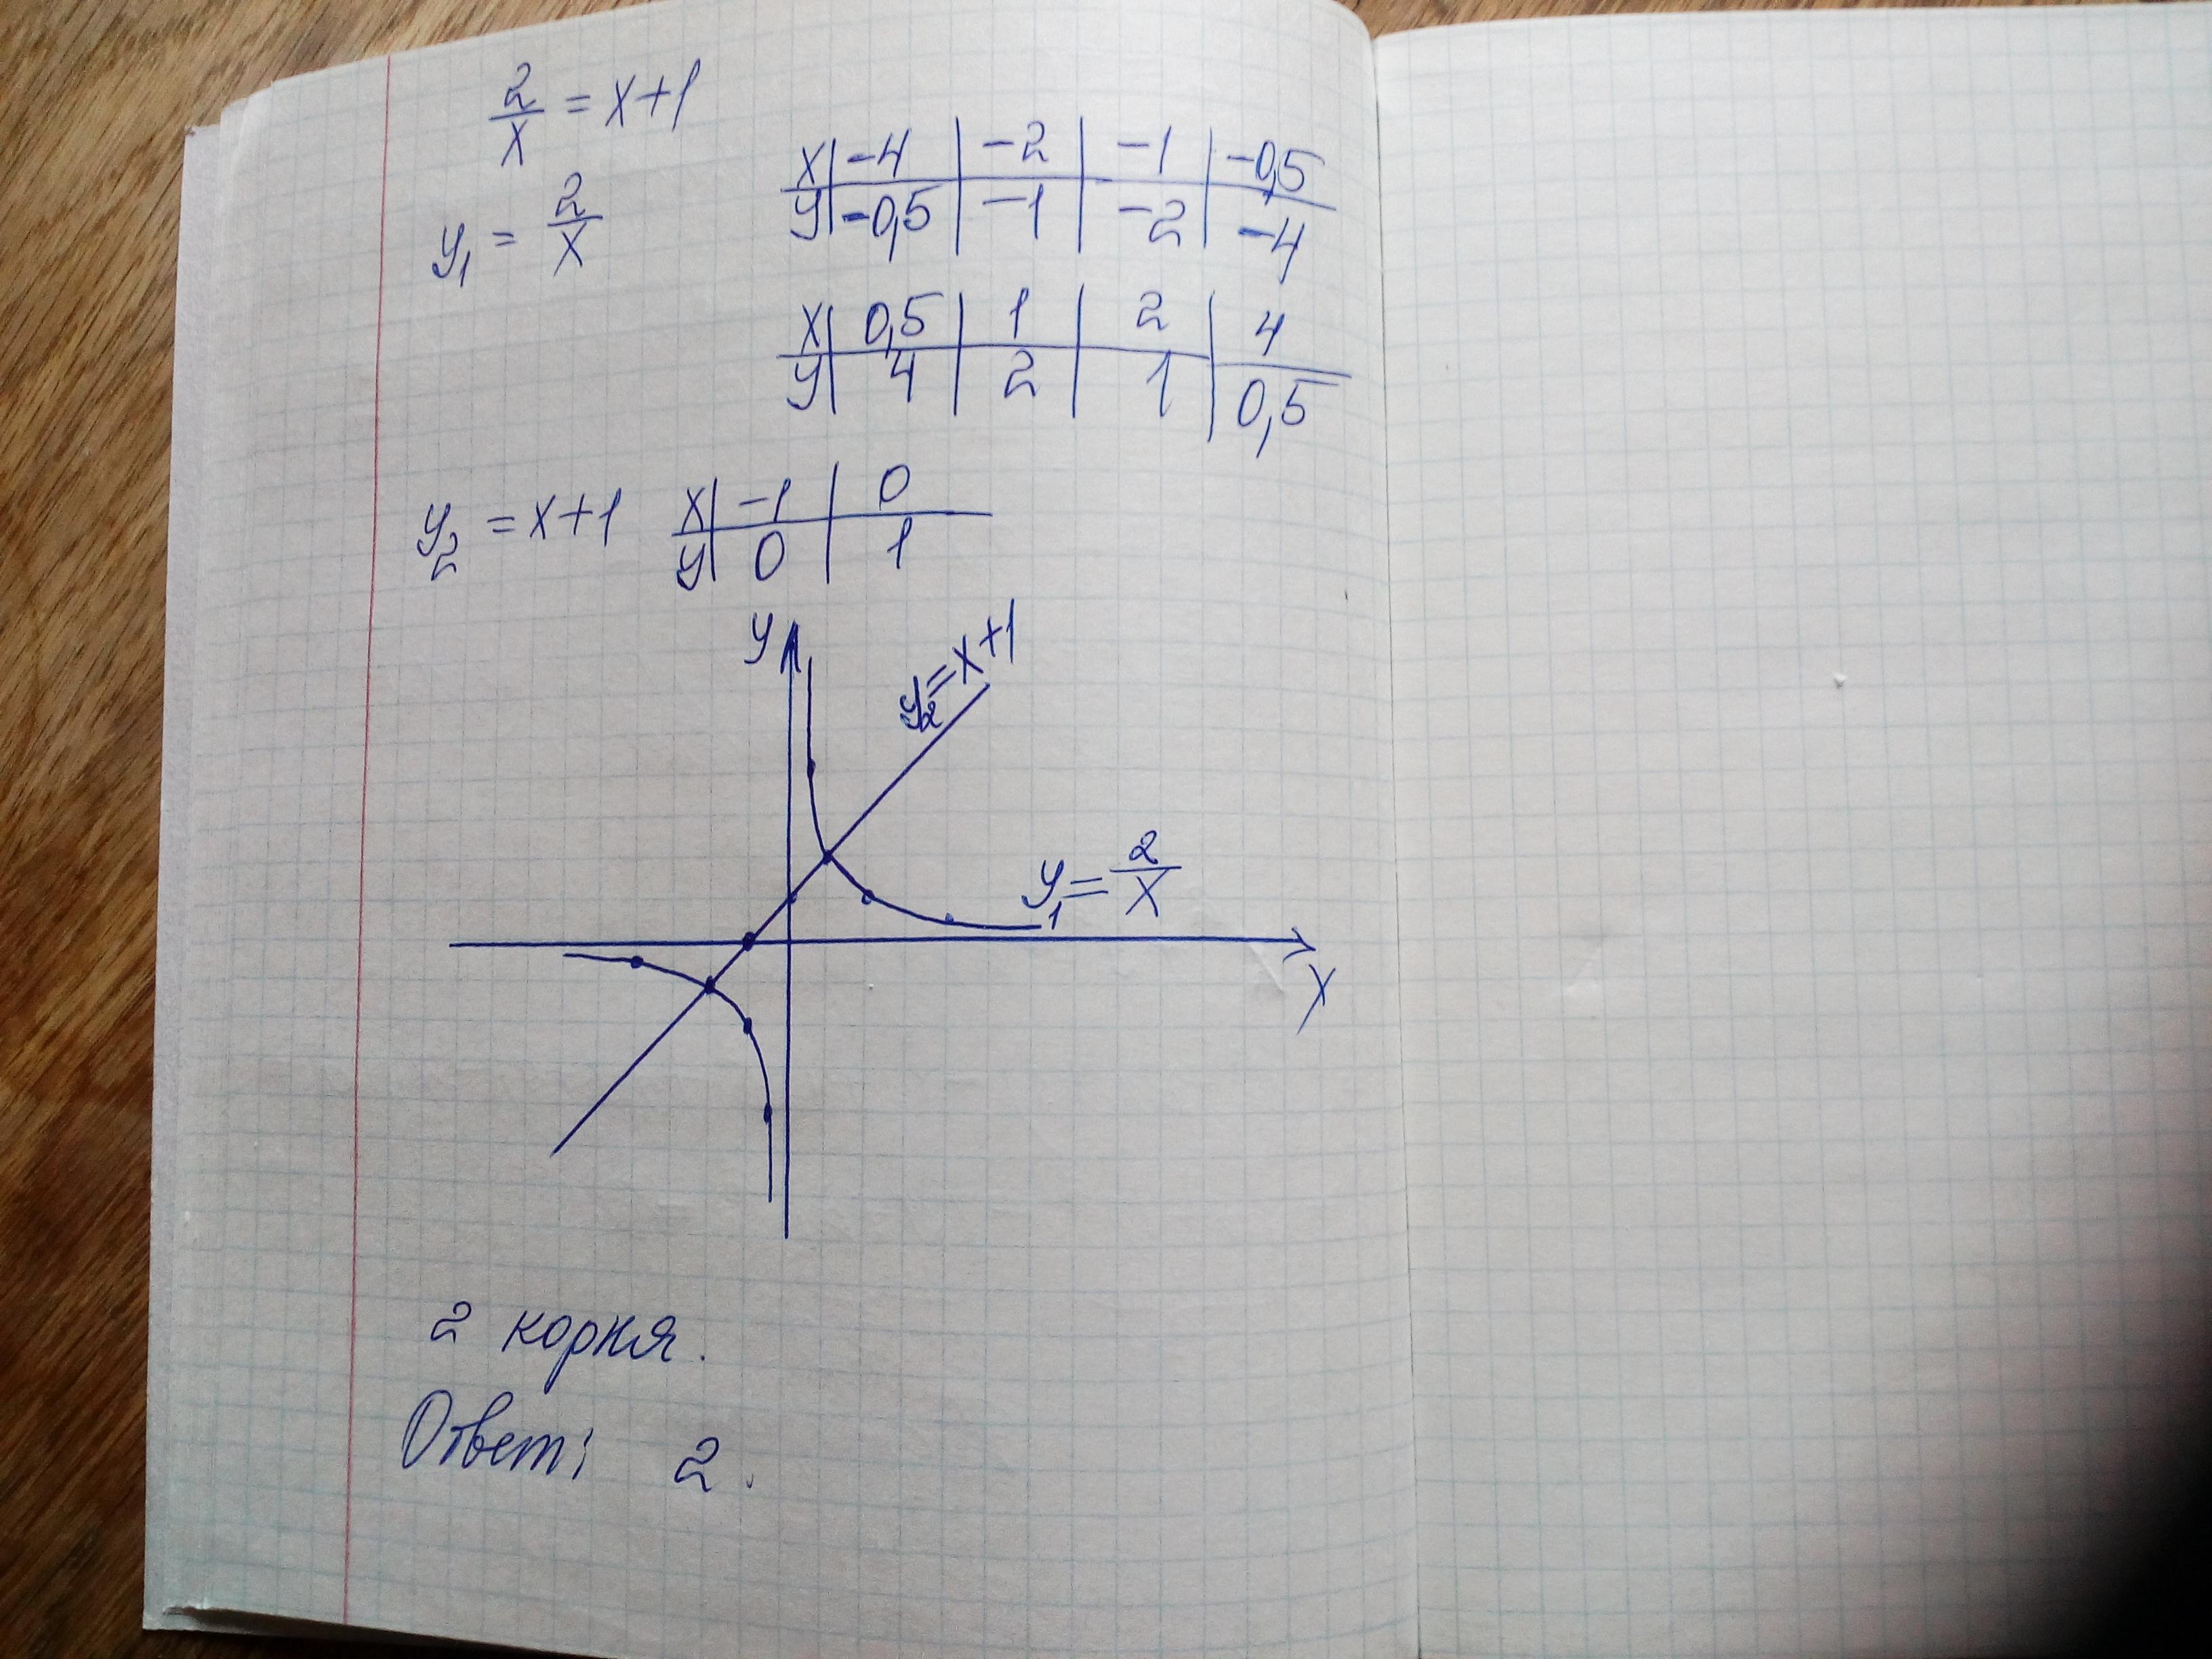 2/x = x+1
y₁ = 2/x
x | -4 | -2 | -1 | -0,5
y | -0,5 | -1 | -2 | -4
x | 0,5 | 1 | 2 | 4
y | 4 | 2 | 1 | 0,5
y₂ = x+1
x | -1 | 0
y | 0 | 1
y
y₂=x+1
y₁=2/x
x
2 корня.
Ответ: 2.